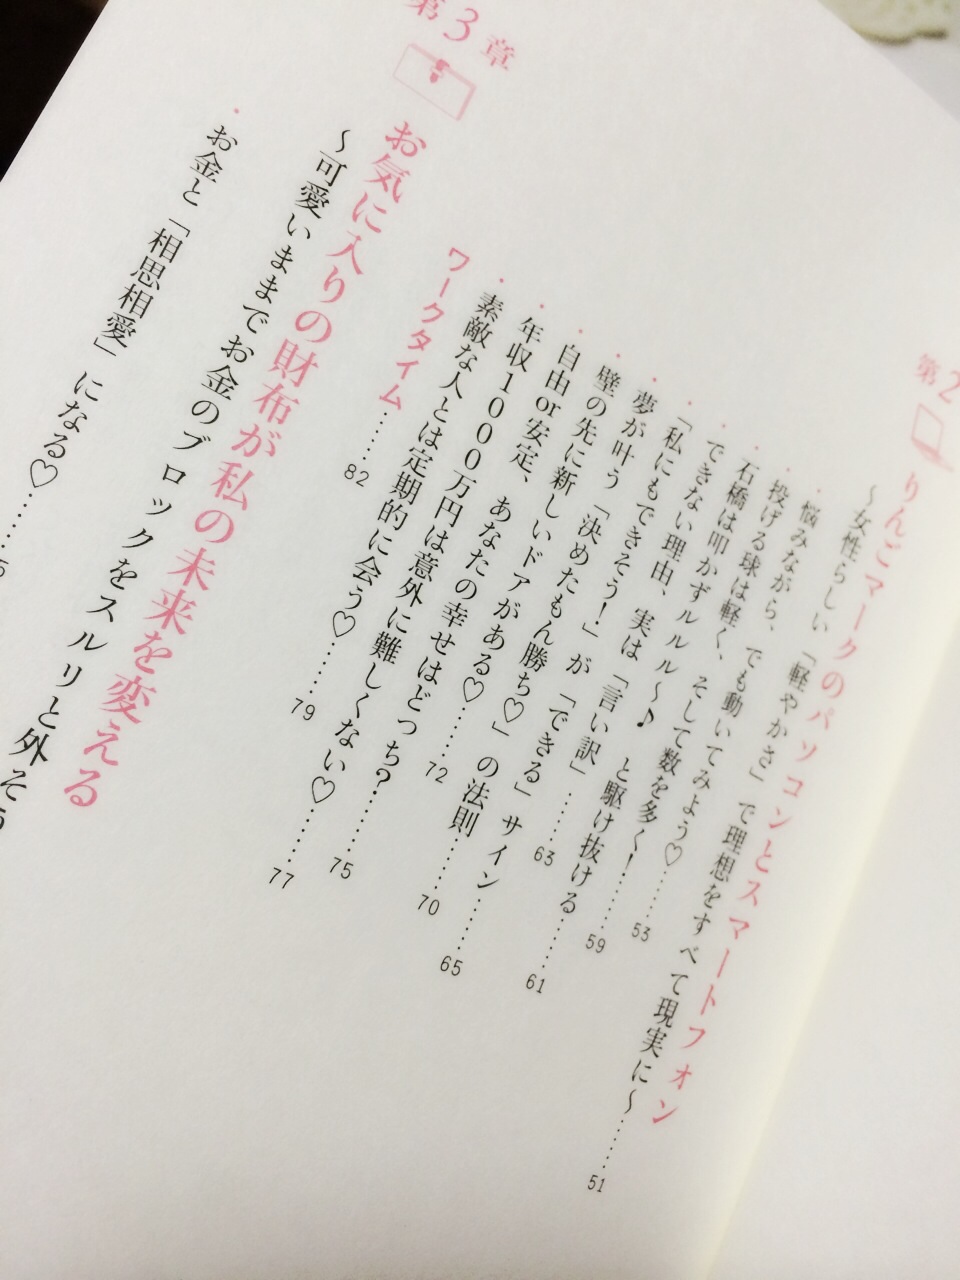 第2
りんごマークのパソコンとスマートフォン
〜女性らしい「軽やかさ」で理想をすべて現実に〜……51
・悩みながら、でも動いてみよう♡……53
・投げる球は軽く、そして数を多く！……59
・石橋は叩かずルルル〜♪ と駆け抜ける……61
・できない理由、実は「言い訳」……63
・「私にもできそう！」が「できる」サイン……65
・夢が叶う「決めたもん勝ち♡」の法則……70
・壁の先に新しいドアがある♡……72
・自由or安定、あなたの幸せはどっち？……75
・年収1000万円は意外に難しくない♡……77
・素敵な人とは定期的に会う♡……79
ワークタイム……82
第3章
お気に入りの財布が私の未来を変える
〜可愛いままでお金のブロックをスルリと外そう
・お金と「相思相愛」になる♡……